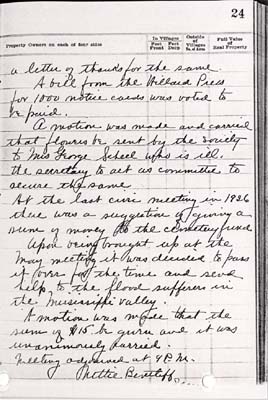 24
Property Owners on each of four sides
In Villages
Feet Front
Feet Deep
Outside of Villages
No. of Acres
Full Value of Real Property
a letter of thanks for the same.
A bill from the Willard Press
for 1000 notice cards was voted to
be paid.
A motion was made and carried
that flowers be sent by the Society
to Mrs George Scheel who is ill.
the secretary to act as committee to
secure the same.
At the last civic meeting in 1926
there was a suggestion of giving a
sum of money to the cemetery fund
Upon being brought up at the
May meeting it was decided to pass
it over for the time and send
help to the flood sufferers in
the Mississippi Valley.
A motion was made that the
sum of $15 be given and it was
unanimously carried.
Meeting adjourned at 9 P.M.
Mettie